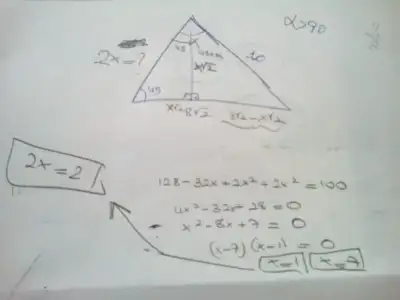 α>90
2x=?
45
10
x√2
45
8√2
8√2-x√2
2x=2
128-32x+2x²+2x²=100
4x²-32x-28=0
x²-8x+7=0
(x-7)(x-1)=0
x=1 x=7